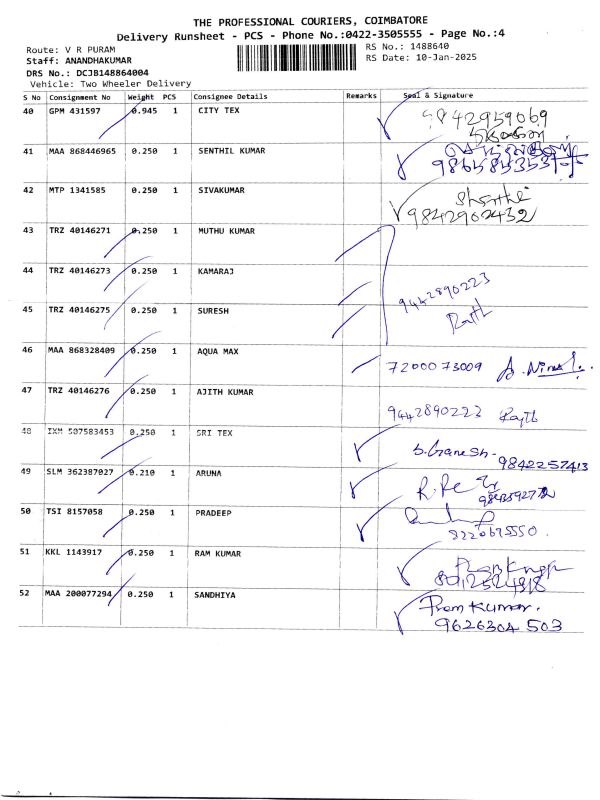 THE PROFESSIONAL COURIERS, COIMBATORE
Delivery Runsheet - PCS - Phone No.:0422-3505555 - Page No.:4
Route: V R PURAM
RS No.: 1488640
Staff: ANANDHAKUMAR
RS Date: 10-Jan-2025
DRS No.: DCJB148864004
Vehicle: Two Wheeler Delivery
S No Consignment No Weight PCS Consignee Details Remarks Seal & Signature
40 GPM 431597 0.945 1 CITY TEX 9842959069
41 MAA 868446965 0.250 1 SENTHIL KUMAR
42 MTP 1341585 0.250 1 SIVAKUMAR Shanthi
9842902432
43 TRZ 40146271 0.250 1 MUTHU KUMAR
44 TRZ 40146273 0.250 1 KAMARAJ 9442890223
45 TRZ 40146275 0.250 1 SURESH
46 MAA 868328409 0.250 1 AQUA MAX 7200073009
47 TRZ 40146276 0.250 1 AJITH KUMAR 9442890223
48 IXM 507583453 0.250 1 SRI TEX S.Ganesh-
9842257413
49 SLM 362387027 0.210 1 ARUNA
50 TSI 8157058 0.250 1 PRADEEP
8220675550.
51 KKL 1143917 0.250 1 RAM KUMAR
52 MAA 200077294 0.250 1 SANDHIYA Prem Kumar.
9626304 503